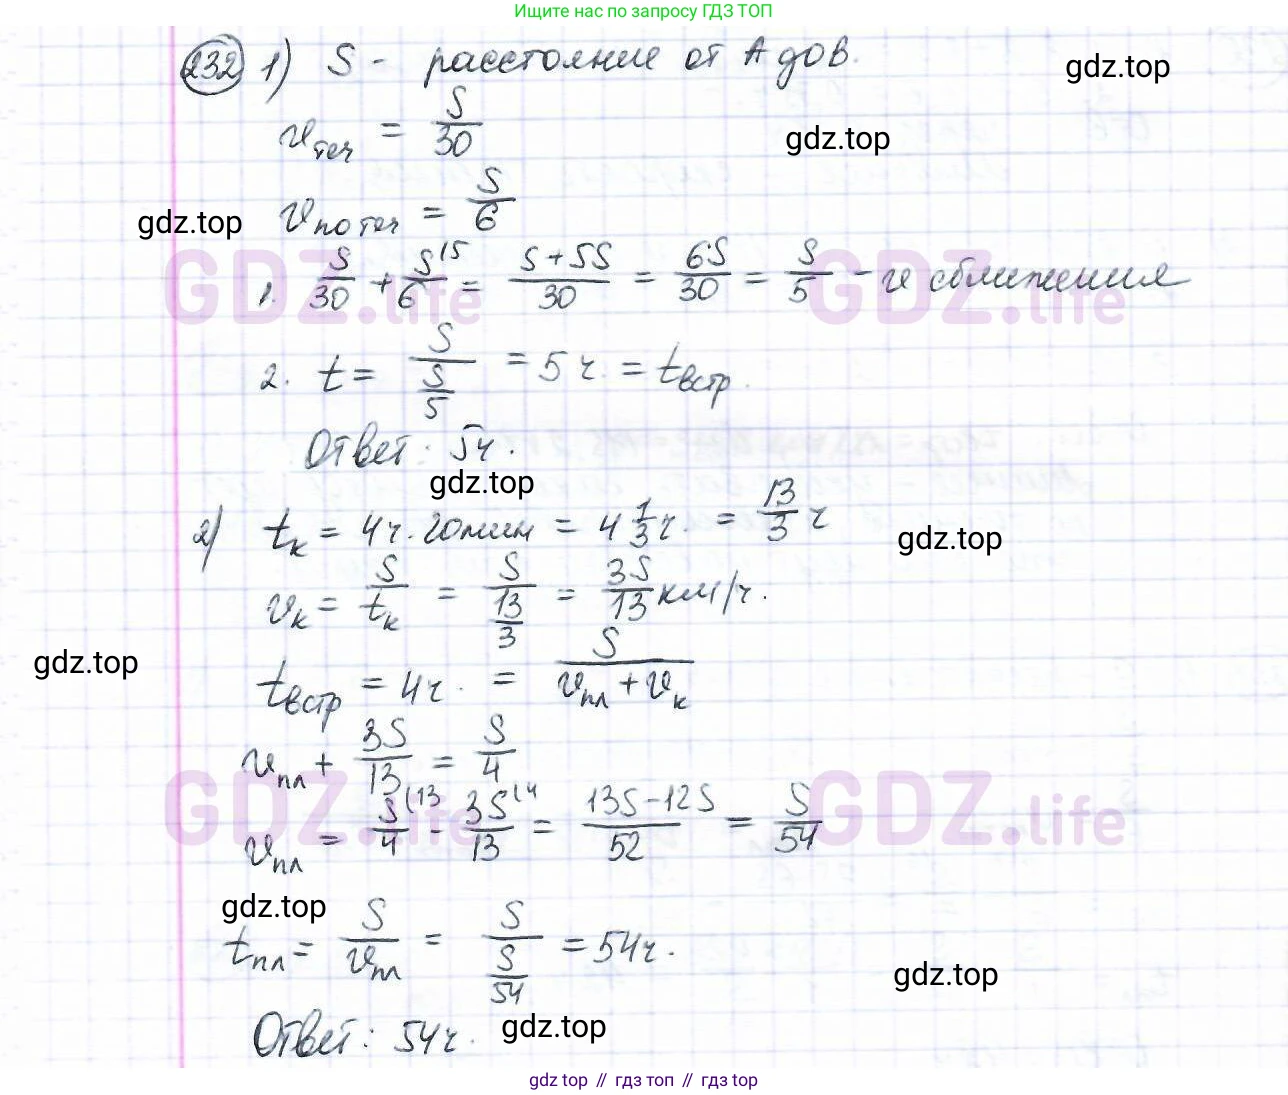 Ищите нас по запросу ГДЗ ТОП
232 1) S - расстояние от А до В.
gdz.top
vтеч = S/30
gdz.top
vпо теч = S/6
gdz.top
GDZ.life GDZ.life
1. S/30 + S/6 (5 = (S+5S)/30 = 6S/30 = S/5 - v сближения
2. t = S/(S/5) = 5 ч. = tвстр.
Ответ: 5ч.
gdz.top
2) tк = 4ч. 20мин = 4 1/3 ч. = 13/3 ч
gdz.top
vк = S/tк = S/(13/3) = 3S/13 км/ч.
gdz.top
tвстр = 4ч. = S/(vпл + vк)
vпл + 3S/13 = S/4
GDZ.life GDZ.life
vпл = S/4 (13 - 3S/13 (4 = (13S-12S)/52 = S/54
gdz.top
tпл = S/vпл = S/(S/54) = 54ч.
gdz.top
Ответ: 54ч.
gdz.top
gdz top // гдз топ // gdz top